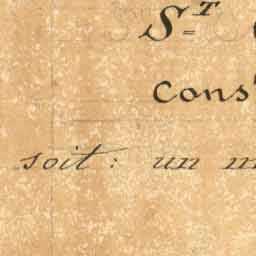 St
Cons
soit: un m